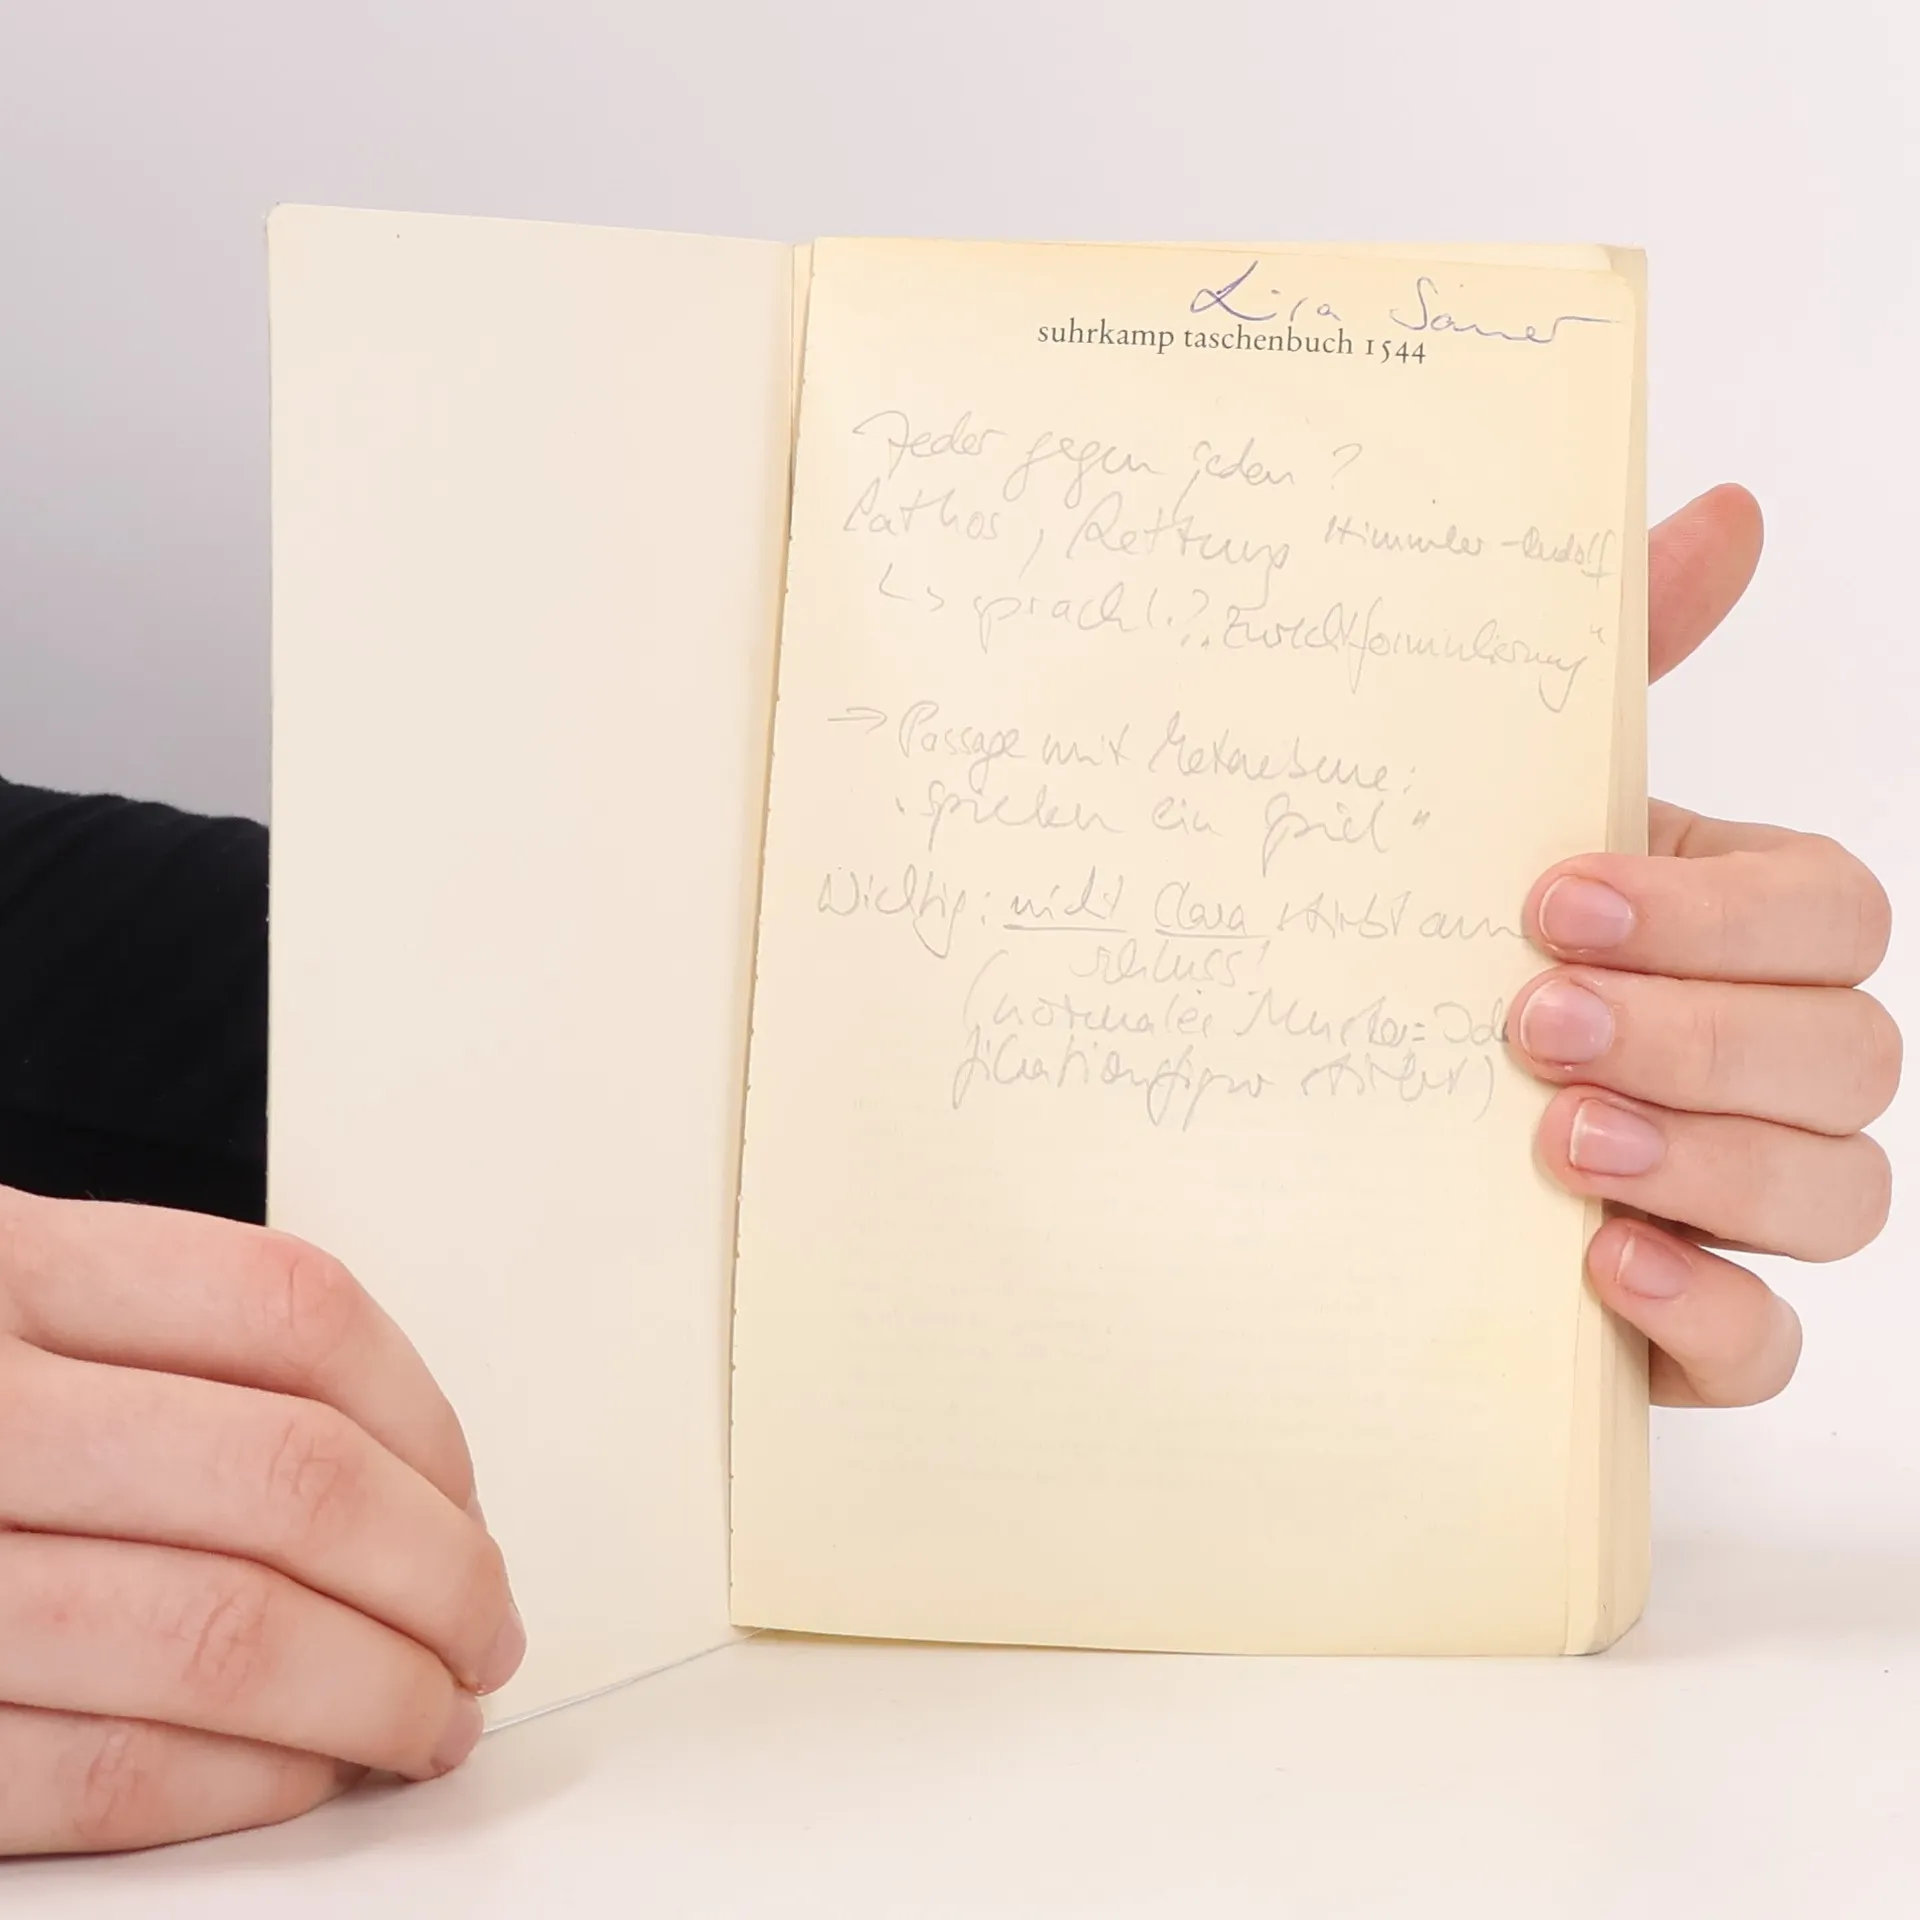 Lisa
suhrkamp taschenbuch 1544
Jeder gegen jeden?
Pathos, Rettung Himmler-Rudolf
↳ sprachl.? „Zurechtformulierung“
→ Passage mit Metaebene:
„spielen ein Spiel“
Wichtig: nicht Clara stirbt am
schluss!
(normales Muster=Iden
fikationsfigur stirbt)